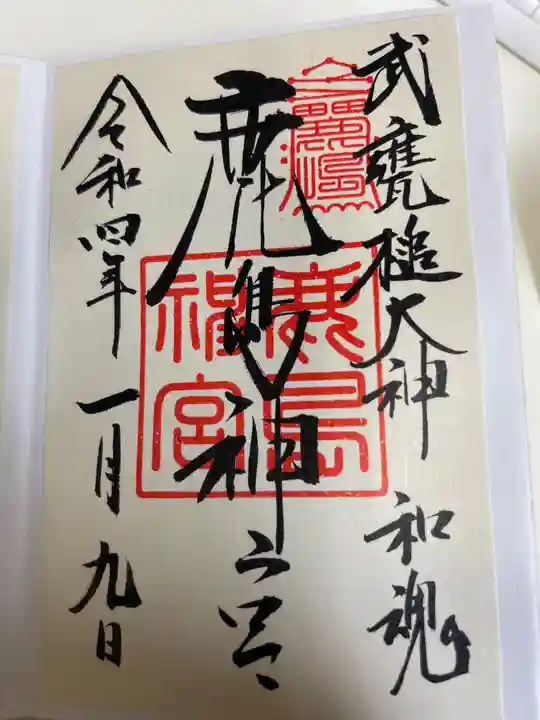 武甕槌大神 和魂
鹿島神宮
鹿島神宮
令和四年一月九日